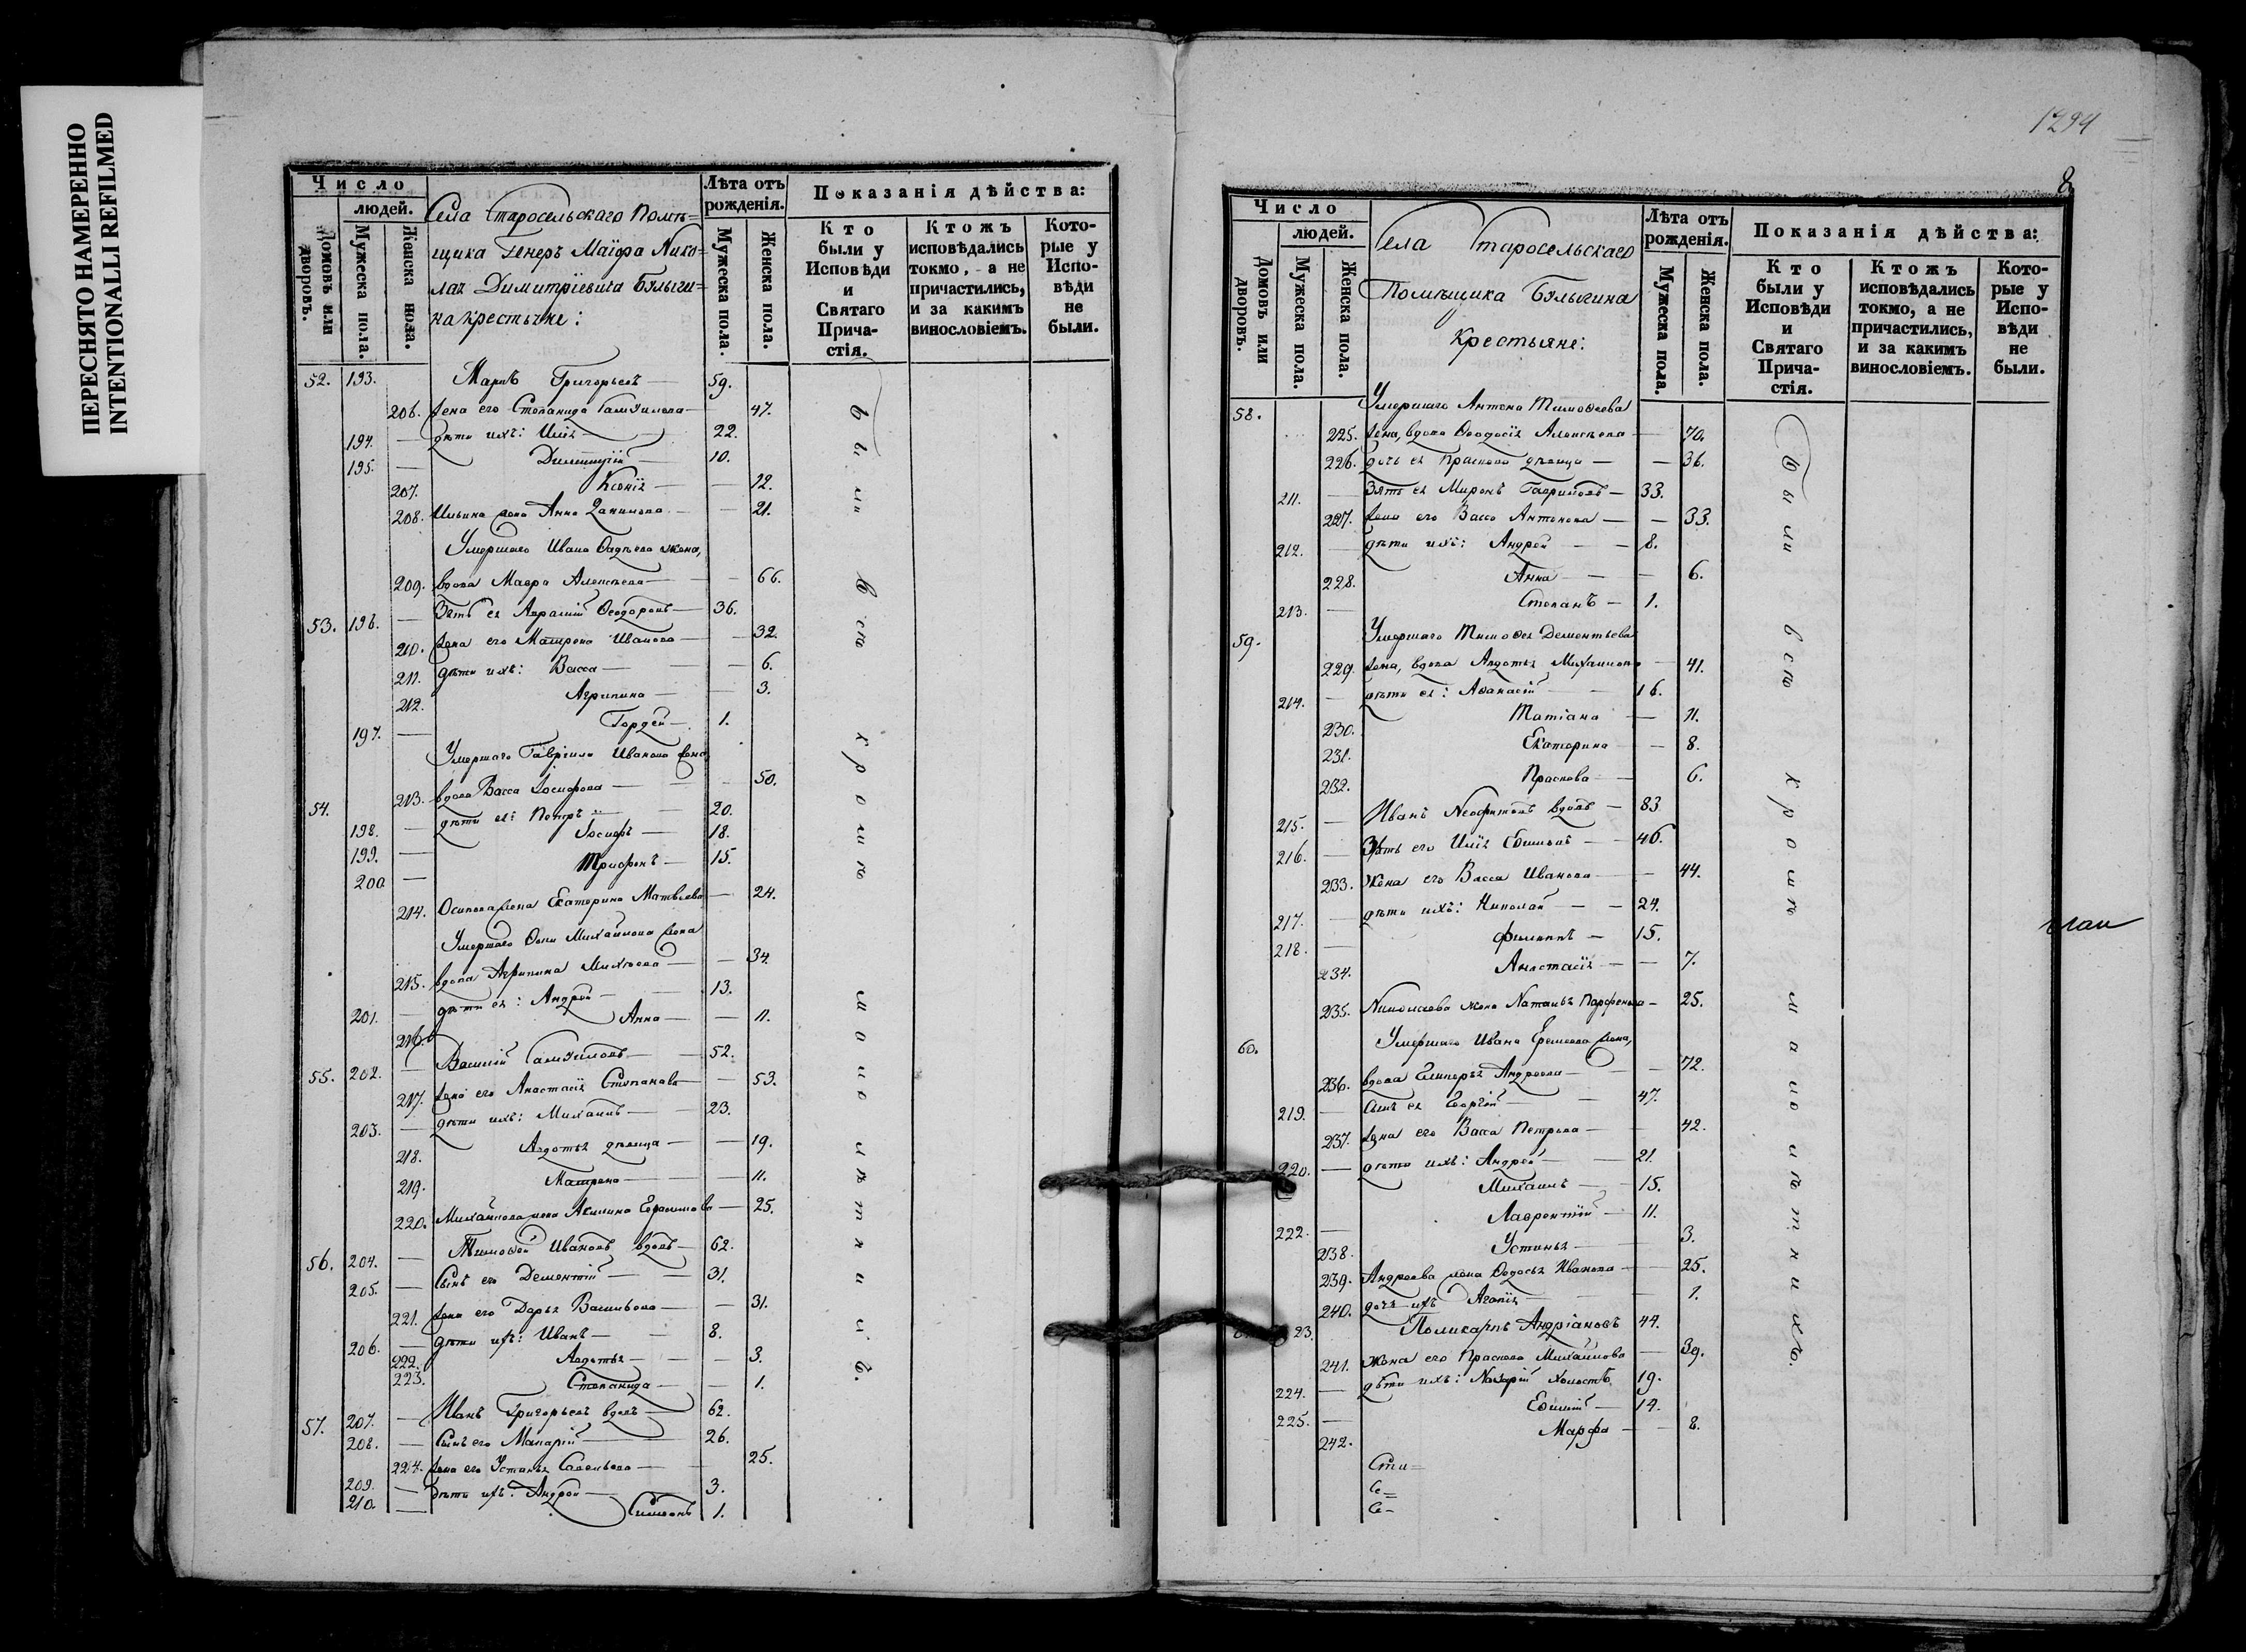 ПЕРЕСНЯТО НАМЕРЕННО
INTENTIONALLI REFILMED
Число
людей.
Домовъ или дворовъ.
Мужеска пола.
Женска пола.
Села Старосельскаго Помѣ=
щика Генеръ Маіора Нико=
лая Димитріевича Булыги=
на крестьяне:
Лѣта отъ рожденія.
Мужеска пола.
Женска пола.
Показанія дѣйства:
Кто были у Исповѣди и Святаго Причастія.
Ктожъ исповѣдались токмо, а не причастились, и за какимъ винословіемъ.
Которые у Исповѣди не были.
52. 193. Маркъ Григорьевъ — 59.
206. жена его Степанида — 47.
194. — дѣти ихъ: Илія — 22.
195. — Димитрій — 10.
207. Ксенія — 12.
208. Ильина жена Анна — 21.
Умершаго Ивана жена,
209. вдова Мавра Алексѣева — 66.
53. 196. — Зять ея Ѳеодоровъ — 36.
210. жена его Матрона Иванова — 32.
211. дѣти ихъ: Васса — 6.
212. Агрипина — 3.
197. — Гордей — 1.
Умершаго Гавріила Иванова жена,
54. 213. вдова Васса Іосифова — 50.
198. — дѣти ея: Петръ — 20.
199. — Іосифъ — 18.
200 — Трифонъ — 15.
214. Осипова жена Екатерина Матвѣева — 24.
Умершаго Михайлова жена
215. вдова Агрипина — 34.
201. — дѣти ея: Андрей — 13.
216. Анна — 11.
55. 202. — Василій — 52.
217. жена его Анастасія Степанова — 53.
203. — дѣти ихъ: Михаилъ — 23.
218. Авдотья дѣвица — 19.
219. Матрона — 11.
220. Михайлова жена Акилина — 25.
56. 204. — Тимоѳей Ивановъ вдовъ — 62.
205. — Сынъ его Дементій — 31.
221. жена его Дарья Васильева — 31.
206. — дѣти ихъ: Иванъ — 8.
222. Авдотья — 3.
223. Степанида — 1.
57. 207. — Иванъ Григорьевъ вдовъ — 62.
208. — Сынъ его Макарій — 26.
224. жена его Устинья Савельева — 25.
209. — дѣти ихъ: Андрей — 3.
210 — Симеонъ 1.
были всѣ кромѣ малолѣтнихъ.
1294
8
Число
людей.
Домовъ или дворовъ.
Мужеска пола.
Женска пола.
Села Старосельскаго
Помѣщика Булыгина
Крестьяне:
Лѣта отъ рожденія.
Мужеска пола.
Женска пола.
Показанія дѣйства:
Кто были у Исповѣди и Святаго Причастія.
Ктожъ исповѣдались токмо, а не причастились, и за какимъ винословіемъ.
Которые у Исповѣди не были.
58. Умершаго Антона Тимоѳеева
225. жена, вдова Ѳеодосія Алексѣева — 70.
226. дочь ея Праскова дѣвица — 36.
211. — Зять ея Миронъ Гавриловъ — 33.
227. жена его Васса Антонова — 33.
212. — дѣти ихъ: Андрей — 8.
228. Анна — 6.
213. — Степанъ — 1.
59. Умершаго Тимоѳея Дементьева
229. жена, вдова Авдотья Михайлова — 41.
214. — дѣти ея: Аѳанасій — 16.
230. Татіана — 11.
231. Екатерина — 8.
232. Праскова — 6.
215. — Иванъ Неофитовъ вдовъ — 83
216. — Зять его Илія — 46.
233. Жена его Васса Иванова — 44.
217. — дѣти ихъ: Николай — 24.
218. — Филиппъ — 15.
234. Анастасія — 7.
235. Николаева жена Наталья Парфенова — 25.
60. Умершаго Ивана жена,
236. вдова Гликерья Андреева — 72.
219. — Сынъ ея Георгій — 47.
237. жена его Васса Петрова — 42.
220. — дѣти ихъ: Андрей — 21.
Михаилъ — 15.
222. — Лаврентій — 11.
238. Устинья — 3.
239. Андреева жена Ѳедосья Иванова — 25.
240. дочь ихъ Агапія — 1.
23. Поликарпъ Андріановъ 44.
241. Жена его Праскова Михайлова — 39.
224. — дѣти ихъ: Назарій холостъ 19.
225. — Евѳимій — 14.
242. Марфа — 8.
Были всѣ кромѣ малолѣтнихъ.